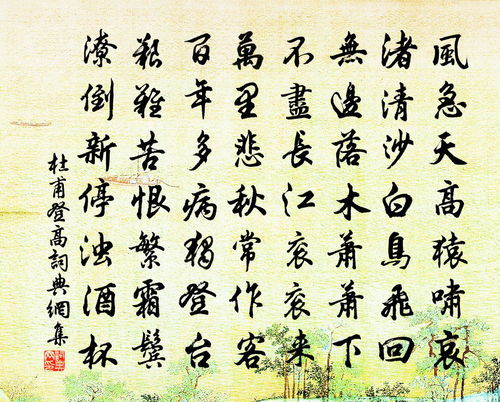 風急天高猿嘯哀
渚清沙白鳥飛回
無邊落木蕭蕭下
不盡長江衮衮来
萬里悲秋常作客
百年多病獨登台
艱難苦恨繁霜鬢
潦倒新停浊酒杯
杜甫登高詞典網集